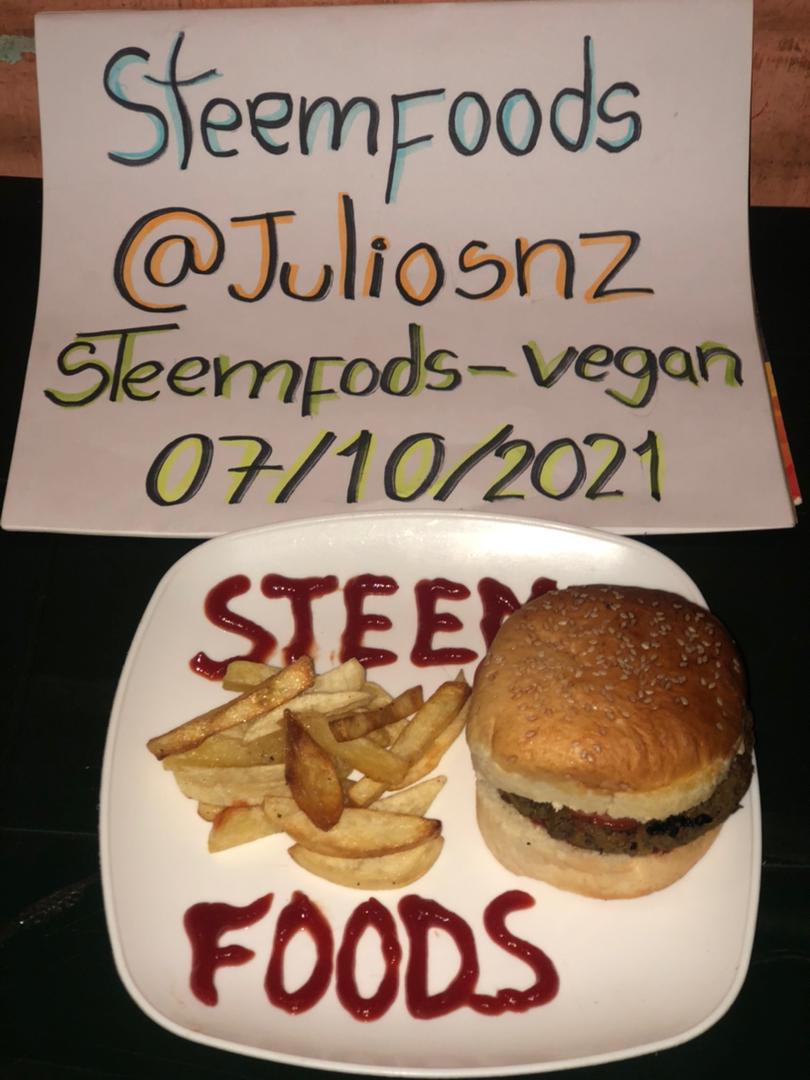 SteemFoods
@Juliosnz
STeemFods-vegan
07/10/2021
STEEM
FOODS